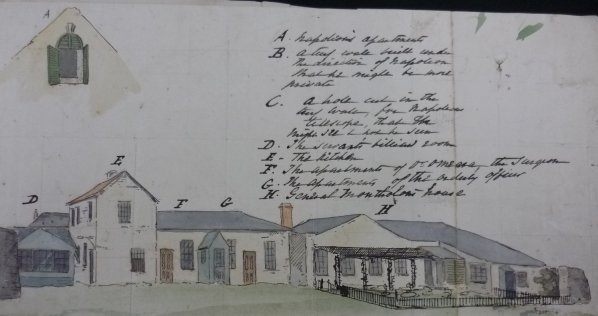 A
A. Napoleon's apartments
B. A turf wall built under
the direction of Napoleon
that he might be more
private
C. A hole cut in the
turf wall for Napoleons
telescope, that he
might see & not be seen
D. The servants billiard room
E - The kitchen
F. The apartments of Dr. Omeara the surgeon
G. The apartments of the orderly officer
H. General Montholons house
D
E
F
G
H